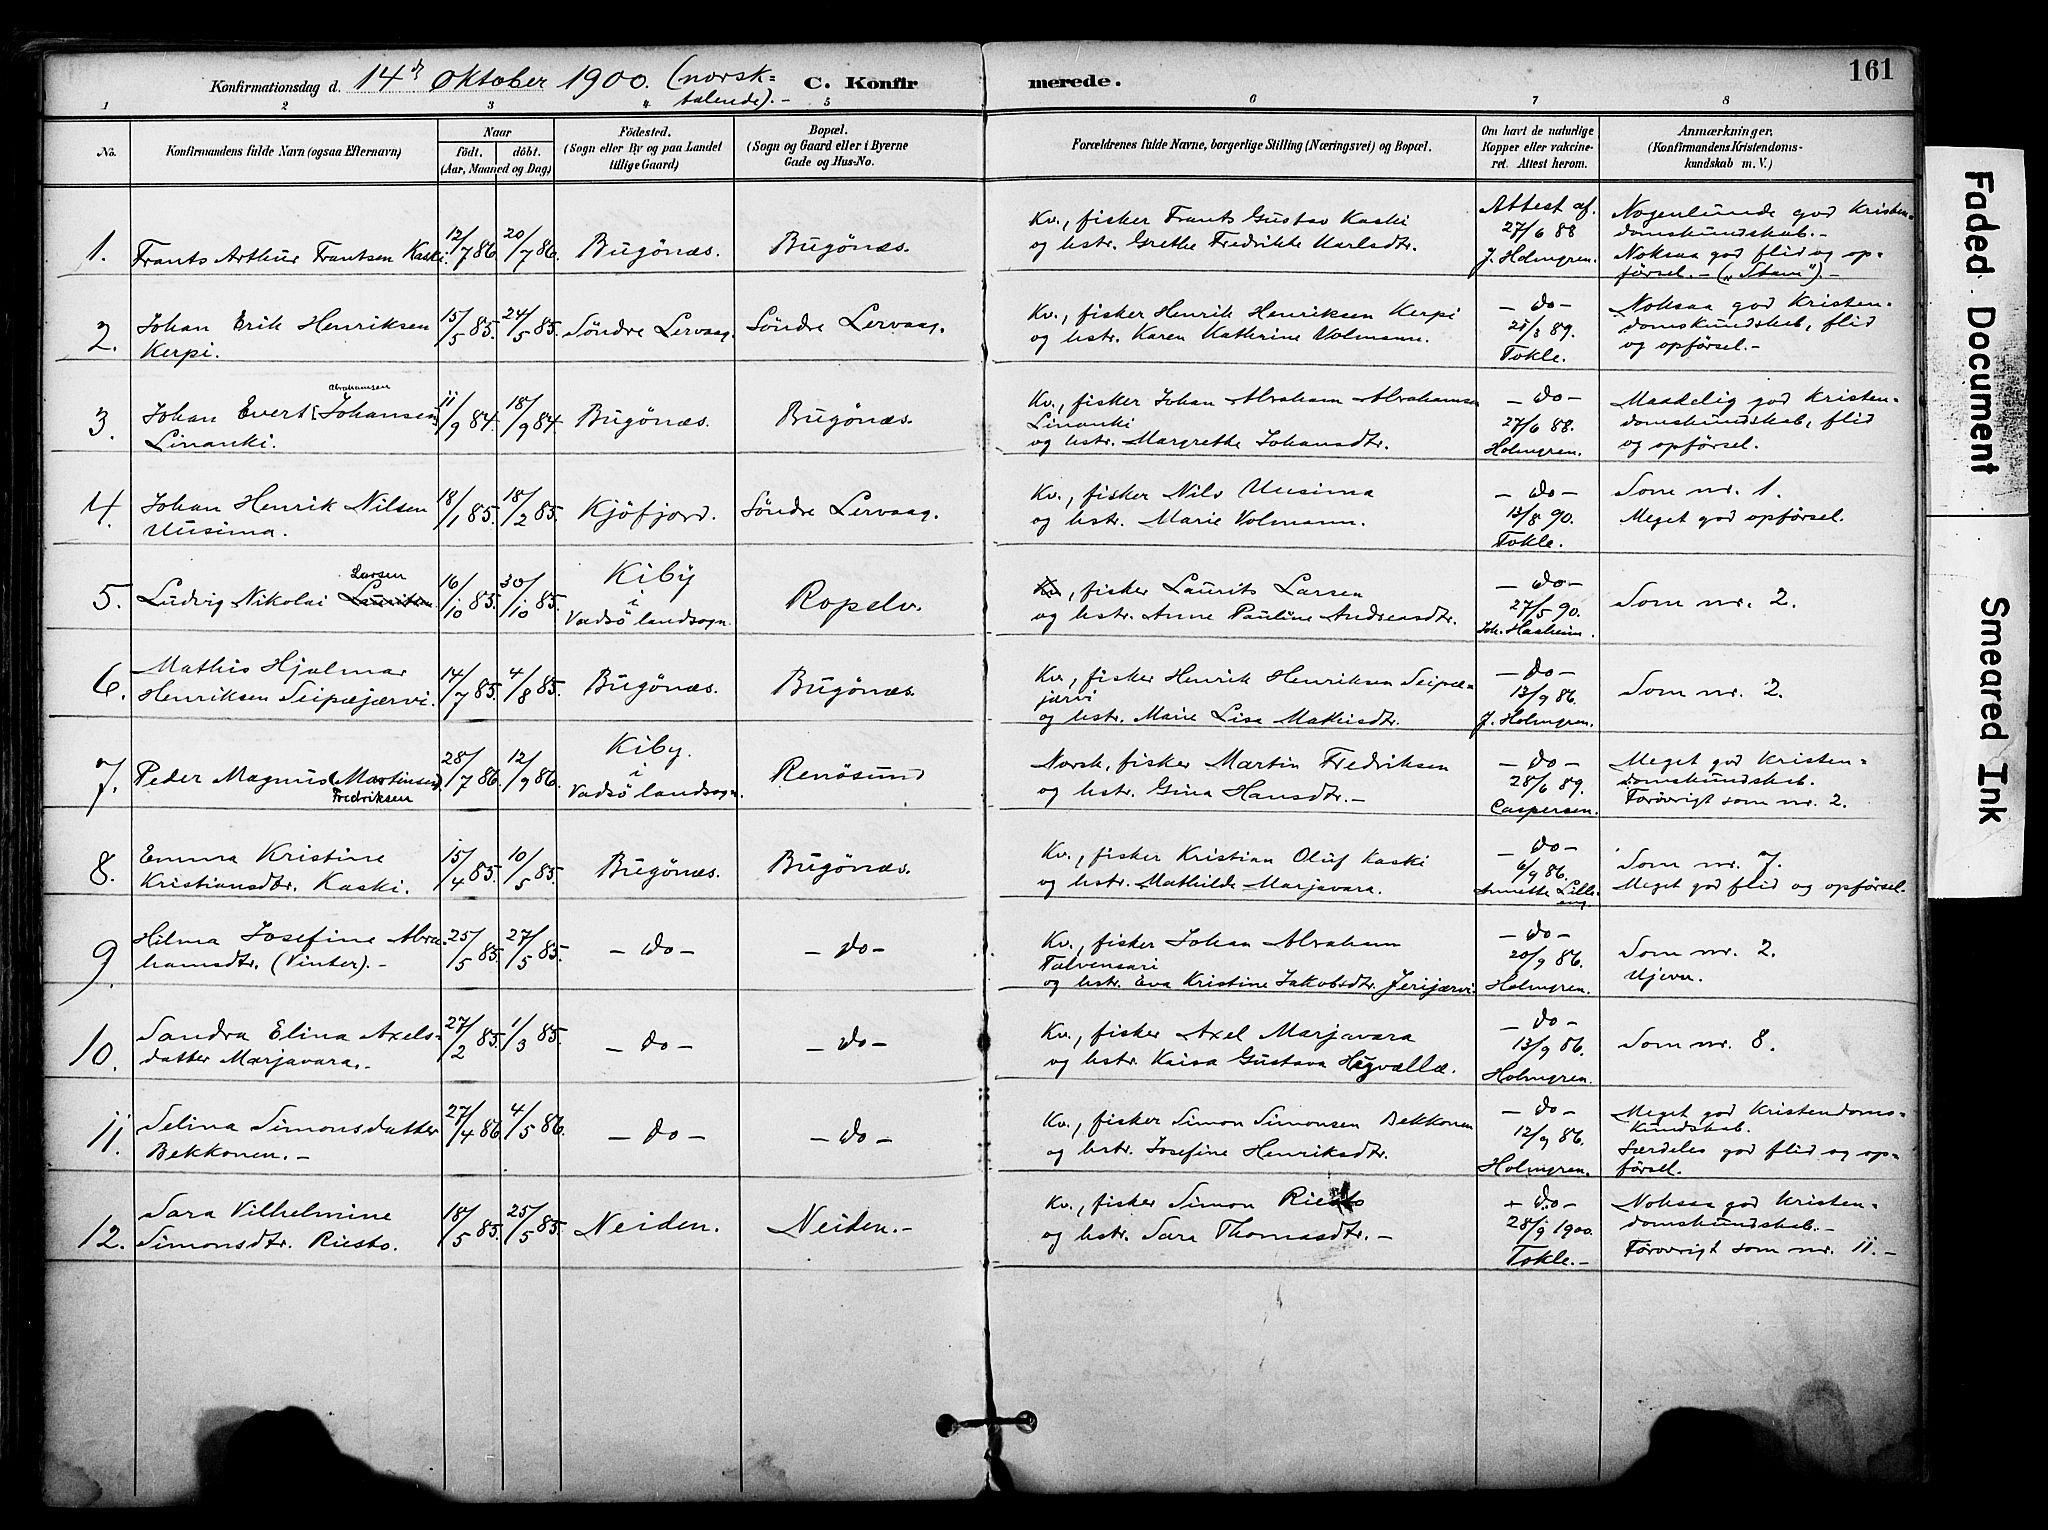 161
Konfirmationsdag d. 14de Oktober 1900. (norsk=
talende).-
C. Konfirmerede.
1 2 3 4 5 6 7 8
No.
Konfirmandens fulde Navn (ogsaa Efternavn)
Naar
født. døbt.
(Aar, Maaned og Dag)
Födested.
(Sogn eller By og paa Landet
tillige Gaard)
Bopæl.
(Sogn og Gaard eller i Byerne
Gade og Hus-No.
Forældrenes fulde Navne, borgerlige Stilling (Næringsvei) og Bopæl.
Om havt de naturlige
Kopper eller vakcine-
ret. Attest herom.
Anmærkninger.
(Konfirmandens Kristendoms-
kundskab m. V.)
1. Frants Arthur Frantsen Kaski. 12/7 86. 20/7 86. Bugönæs. Bugönæs.
Kv., fisker Frants Gustav Kaski
og hstr. Grethe Fredrikke Karlsdtr.
Attest af.
27/6 88
J. Holmgren.
Nogenlunde god Kristen=
domskundskab.-
Noksaa god flid og op=
førsel.- („Stam").-
2. Johan Erik Henriksen
Kerpi.
15/5 85. 24/5 85. Söndre Lervaag. Söndre Lervaag.
Kv., fisker Henrik Henriksen Kerpi
og hstr. Karen Kathrine Volmann.
- do -
21/3 89.
Tokle.
Noksaa god Kristen=
domskundskab, flid
og opförsel.-
Abrahamsen
3. Johan Evert [Johansen]
Linanki.
11/9 84. 18/9 84. Bugönæs. Bugönæs.
Kv., fisker Johan Abraham Abrahamsen
Linanki
og hstr. Margrethe Johansdtr.
- do -
27/6 88.
Holmgren.
Maadelig god Kristen=
domskundskab, flid
og opförsel.
4. Johan Henrik Nilsen
Uusima.
18/1 85. 18/2 85. Kjöfjord. Söndre Lervaag.
Kv., fisker Nils Uusima
og hstr. Marie Volmann.
- do -
13/8 90.
Tokle.
Som nr. 1.
Meget god opförsel.
Larsen
5. Ludvig Nikolai Lauritsen
16/10 85. 30/10 85.
Kiby
i
Vadsö landsogn.
Ropelv.
Kv., fisker Laurits Larsen
og hstr. Anne Pauline Andreasdtr.
- do -
27/5 90.
Joh. Hasheim.
Som nr. 2.
6. Mathis Hjalmar
Henriksen Seipæjærvi.
14/7 85. 4/8 85. Bugönæs. Bugönæs.
Kv., fisker Henrik Henriksen Seipæ=
jærvi
og hstr. Marie Lisa Mathisdtr.
- do -
13/9 86.
J. Holmgren.
Som nr. 2.
7. Peder Magnus (Martinsen)
Fredriksen
28/7 86. 12/9 86.
Kiby.
i
Vadsö landsogn.
Renösund
Norsk, fisker Martin Fredriksen
og hstr. Gina Hansdtr.-
- do -
28/6 89.
Caspersen.
Meget god Kristen=
domskundskab.
Forövrigt som nr. 2.
8. Emma Kristine
Kristiansdtr. Kaski.
15/4 85. 10/5 85. Bugönæs. Bugönæs.
Kv., fisker Kristian Oluf Kaski
og hstr. Mathilde Marjavara.
- do -
6/9 86.
Annette Lille=
eng.
Som nr. 7.
Meget god flid og opförsel.
9. Hilma Josefine Abra=
hamsdtr. (Vinter).-
25/5 85. 27/5 85. - do - - do -
Kv., fisker Johan Abraham
Talvensari
og hstr. Eva Kristine Jakobsdtr. Jerijærvi
- do -
20/9 86.
Holmgren.
Som nr. 2.
Ujevn.
10. Sandra Elina Axels=
datter Marjavara.-
27/2 85. 1/3 85. - do - - do -
Kv., fisker Axel Marjavara
og hstr. Kaisa Gustava Hugvællæ.
- do -
13/9 86.
Holmgren.
Som nr. 8.
11. Selina Simonsdatter
Bekkonen.-
27/4 86. 4/5 86. - do - - do -
Kv., fisker Simon Simonsen Bekkonen
og hstr. Josefine Henriksdtr.
- do -
12/9 86.
Holmgren.
Meget god Kristendoms=
kundskab.
Særdeles god flid og op=
førsel.
12. Sara Vilhelmine
Simonsdtr. Riesto.
18/5 85. 25/5 85. Neiden. Neiden.-
Kv., fisker Simon Riesto
og hstr. Sara Thomasdtr.-
- do -
28/9 1900.
Tokle.-
Noksaa god Kristen=
domskundskab.-
Forövrigt som nr. 11.-
Faded Document
Smeared Ink